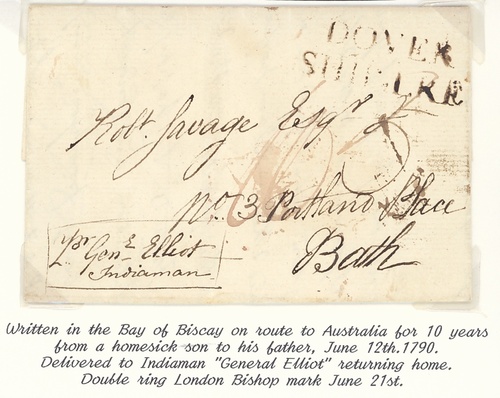 DOVER
SHIP LRE
Robt. Savage Esqr.
No. 3 Portland Place
Bath
pr Genl. Elliot
Indiaman
Written in the Bay of Biscay on route to Australia for 10 years
from a homesick son to his father, June 12th.1790.
Delivered to Indiaman "General Elliot" returning home.
Double ring London Bishop mark June 21st.